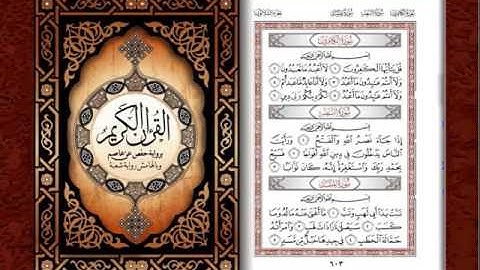 القرآن الكريم
برواية حفص عن عاصم
وبالهامش رواية شعبة
سُورَةُ الكَافِرُونَ
قُلْ يَٰٓأَيُّهَا ٱلْكَٰفِرُونَ ١ لَآ أَعْبُدُ مَا تَعْبُدُونَ ٢
وَلَآ أَنتُمْ عَٰبِدُونَ مَآ أَعْبُدُ ٣ وَلَآ أَنَا۠ عَابِدٌ مَّا عَبَدتُّمْ ٤
وَلَآ أَنتُمْ عَٰبِدُونَ مَآ أَعْبُدُ ٥ لَكُمْ دِينُكُمْ وَلِيَ دِينِ ٦
سُورَةُ النَّصْرِ
إِذَا جَآءَ نَصْرُ ٱللَّهِ وَٱلْفَتْحُ ١ وَرَأَيْتَ
ٱلنَّاسَ يَدْخُلُونَ فِى دِينِ ٱللَّهِ أَفْوَاجًا ٢ فَسَبِّحْ
بِحَمْدِ رَبِّكَ وَٱسْتَغْفِرْهُ إِنَّهُۥ كَانَ تَوَّابًۢا ٣
سُورَةُ المَسَدِ
تَبَّتْ يَدَآ أَبِى لَهَبٍ وَتَبَّ ١ مَآ أَغْنَىٰ عَنْهُ مَالُهُۥ وَمَا
كَسَبَ ٢ سَيَصْلَىٰ نَارًا ذَاتَ لَهَبٍ ٣ وَٱمْرَأَتُهُۥ
حَمَّالَةَ ٱلْحَطَبِ ٤ فِى جِيدِهَا حَبْلٌ مِّن مَّسَدٍۭ ٥
٦٠٣